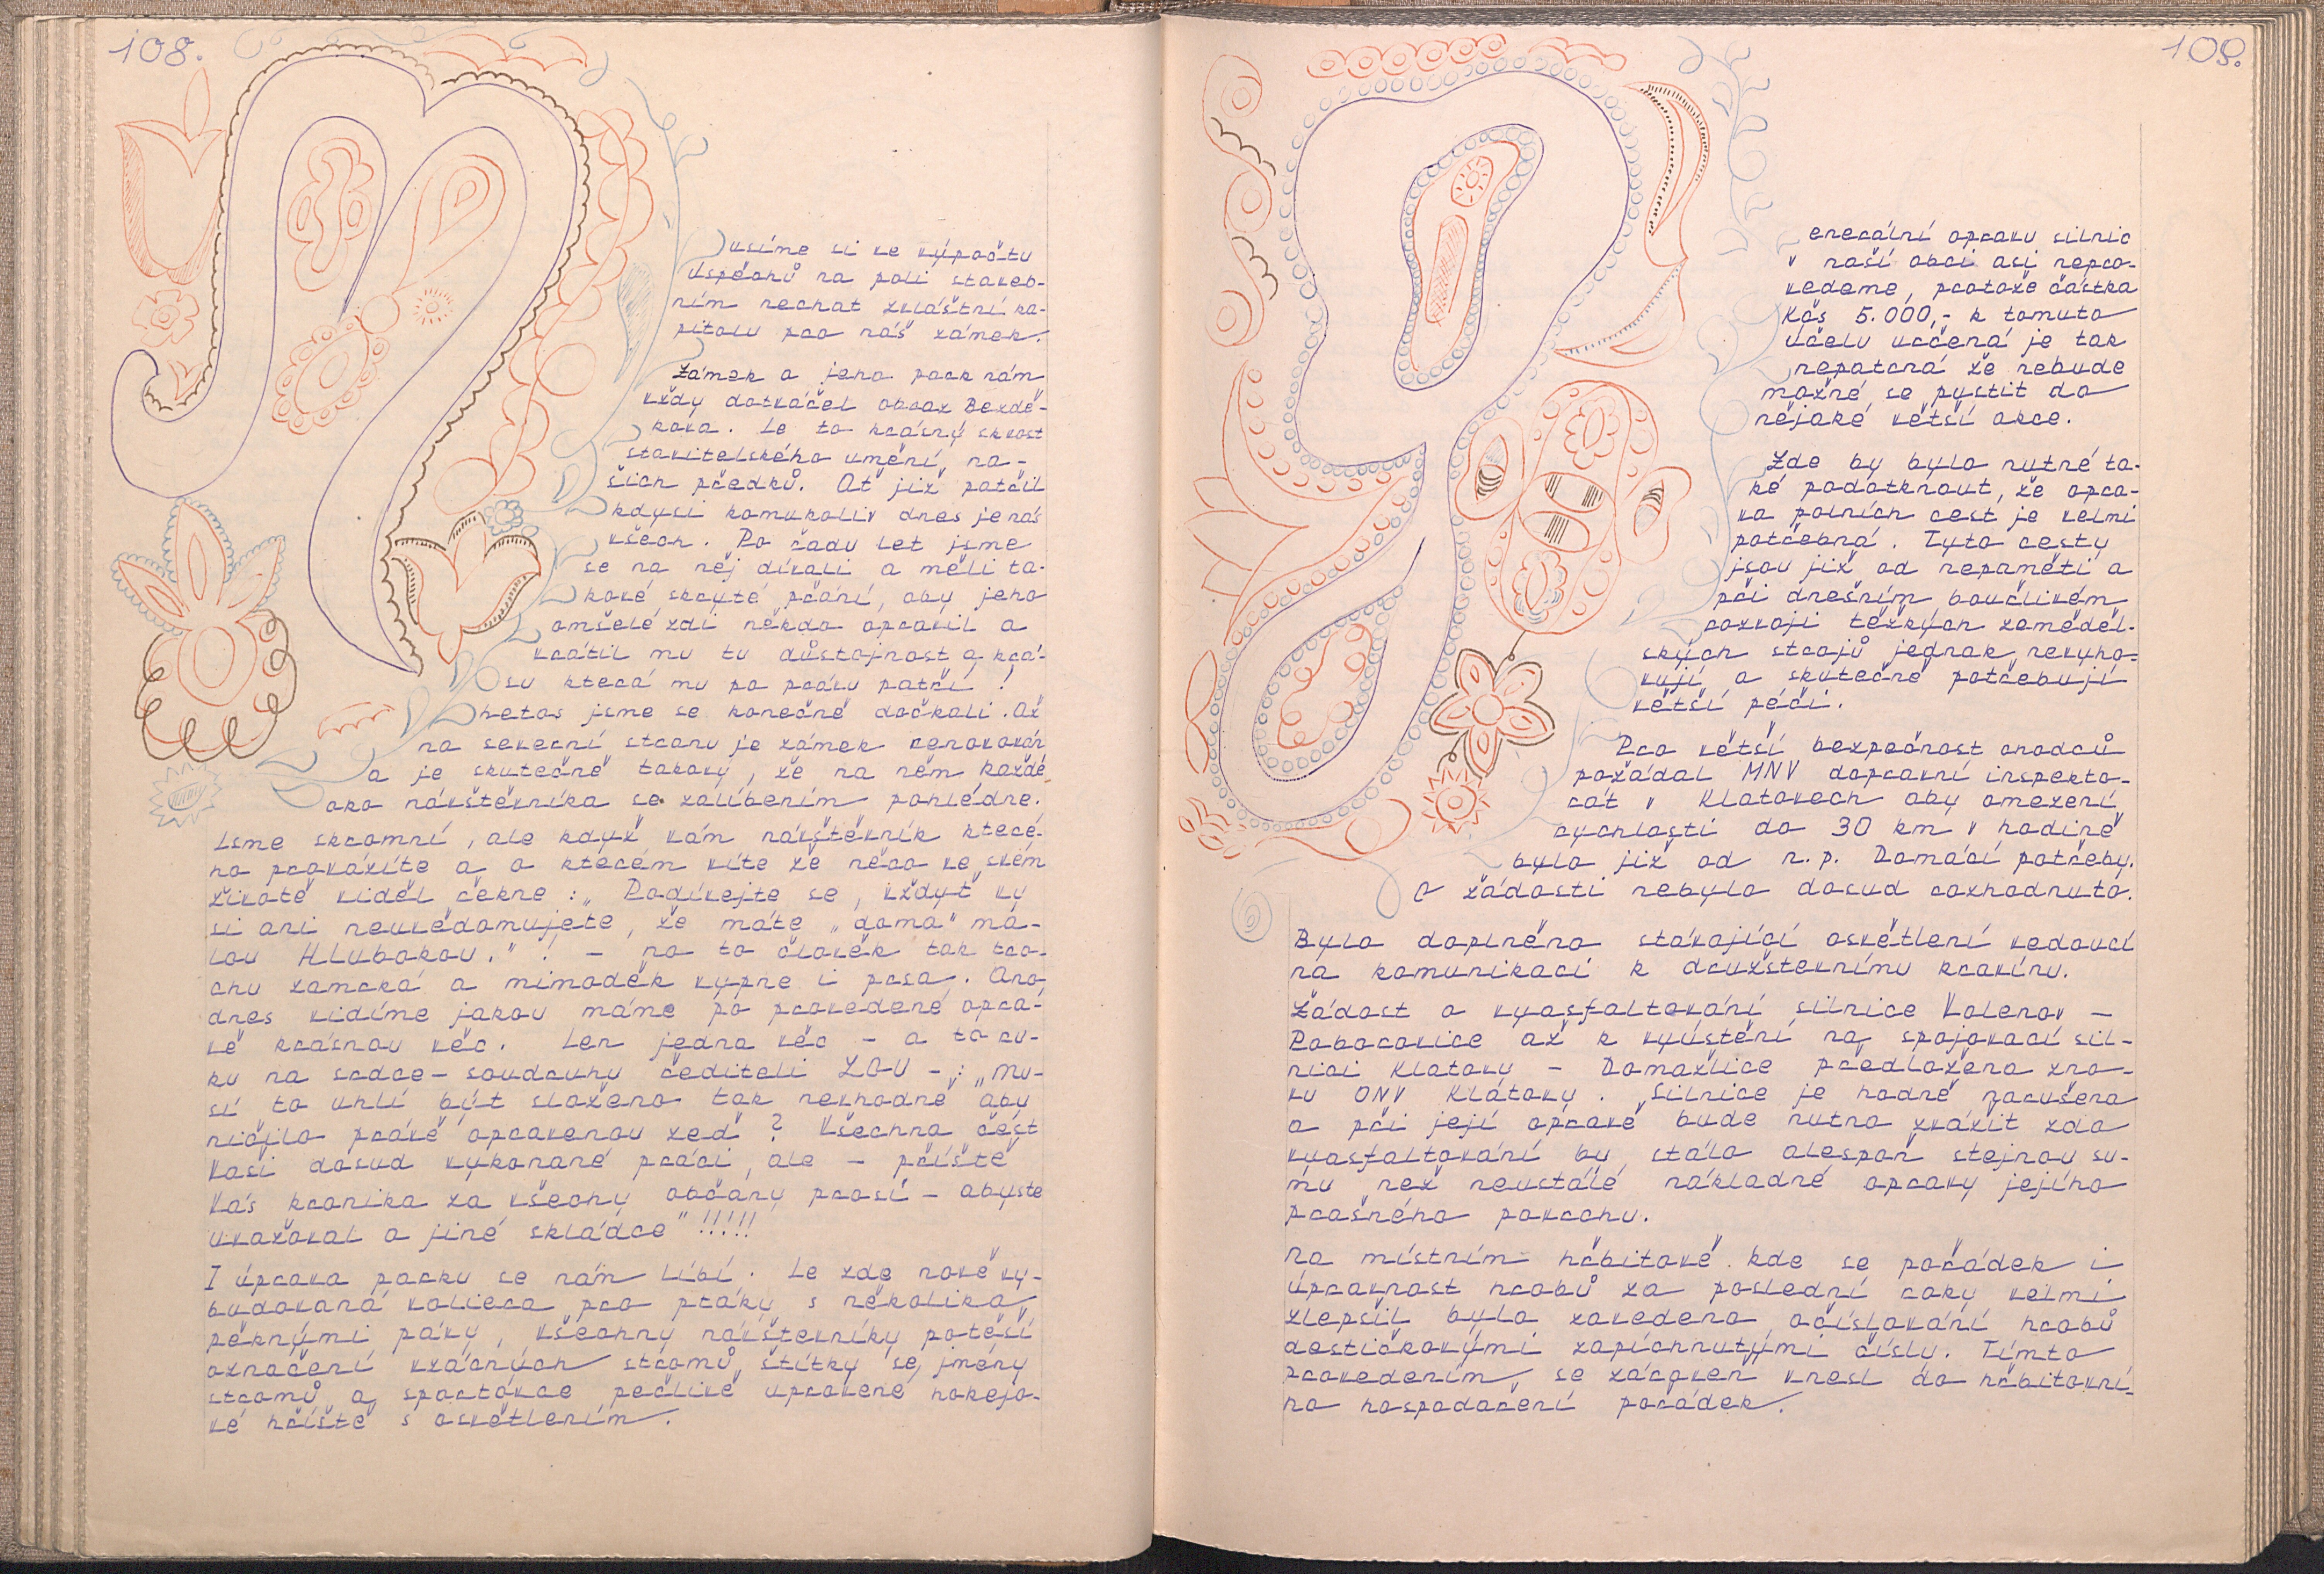 108.
Musíme si ve výpočtu
úspěchů na poli staveb-
ním nechat zvláštní ka-
pitolu pro náš zámek.
Zámek a jeho park nám
vždy dotvářel obraz Bezdě-
kova. Je to krásný skvost
stavitelského umění na-
šich předků. Ať již patřil
kdysi komukoliv dnes je nás
všech. Po řadu let jsme
se na něj dívali a měli ta-
kové skryté přání, aby jeho
omšelé zdi někdo opravil a
vrátil mu tu důstojnost a krá-
su která mu po právu patří!
Letos jsme se konečně dočkali. Až
na severní stranu je zámek renovován
a je skutečně takový, že na něm každé
oko návštěvníka se zalíbením pohlédne.
Jsme skromní, ale když vám návštěvník které-
ho provázíte a o kterém víte že něco ve svém
životě viděl řekne: „Podívejte se, vždyť vy
si ani neuvědomujete, že máte „doma" ma-
lou Hlubokou." ! - no to člověk tak tro-
chu zamrká a mimoděk vypne i prsa. Ano,
dnes vidíme jakou máme po provedené opra-
vě krásnou věc. Jen jedna věc - a to ru-
ku na srdce - soudruhu řediteli ZOU - : „Mu-
sí to uhlí být složeno tak nevhodně aby
ničilo právě opravenou zeď? Všechna čest
Vaší dosud vykonané práci, ale - příště
Vás kronika za všechy občany prosí - abyste
uvažoval o jiné skládce" !!!!!
I úprava parku se nám líbí. Je zde nově vy-
budovaná voliera pro ptáky s několika
pěknými pávy, všechny návštěvníky potěší
označení vzácných stromů, štítky se jmény
stromů a sportovce pečlivě upravené hokejo-
vé hřiště s osvětlením.
109.
Generální opravu silnic
v naší obci asi nepro-
vedeme, protože částka
Kčs 5.000,- k tomuto
účelu určená je tak
nepatrná že nebude
možné se pystit do
nějaké větší akce.
Zde by bylo nutné ta-
ké podotknout, že opra-
va polních cest je velmi
potřebná. Tyto cesty
jsou již od nepaměti a
při dnešním bouřlivém
rozvoji těžkých zeměděl-
ských strojů jednak nevyho-
vují a skutečně potřebují
větší péči.
Pro větší bezpečnost chodců
požádal MNV dopravní inspekto-
rát v Klatovech aby omezení
rychlosti do 30 km v hodině
bylo již od n.p. Domácí potřeby.
O žádosti nebylo dosud rozhodnuto.
Bylo doplněno stávající osvětlení vedoucí
na komunikaci k družstevnímu kravínu.
Žádost o vyasfaltování silnice Volenov -
Poborovice až k vyústění na spojovací sil-
nici Klatovy - Domažlice předložena zno-
vu ONV Klatovy. Silnice je hodně narušena
a při její opravě bude nutno zvážit zda
vyasfaltování by stálo alespoň stejnou su-
mu než neustálé nákladné opravy jejího
prašného povrchu.
Na místním hřbitově kde se pořádek i
úpravnost hrobů za poslední roky velmi
zlepšil bylo zavedeno očíslování hrobů
destičkovými zapíchnutými čísly. Tímto
provedením se zároveň vnesl do hřbitovní-
ho hospodaření pořádek.